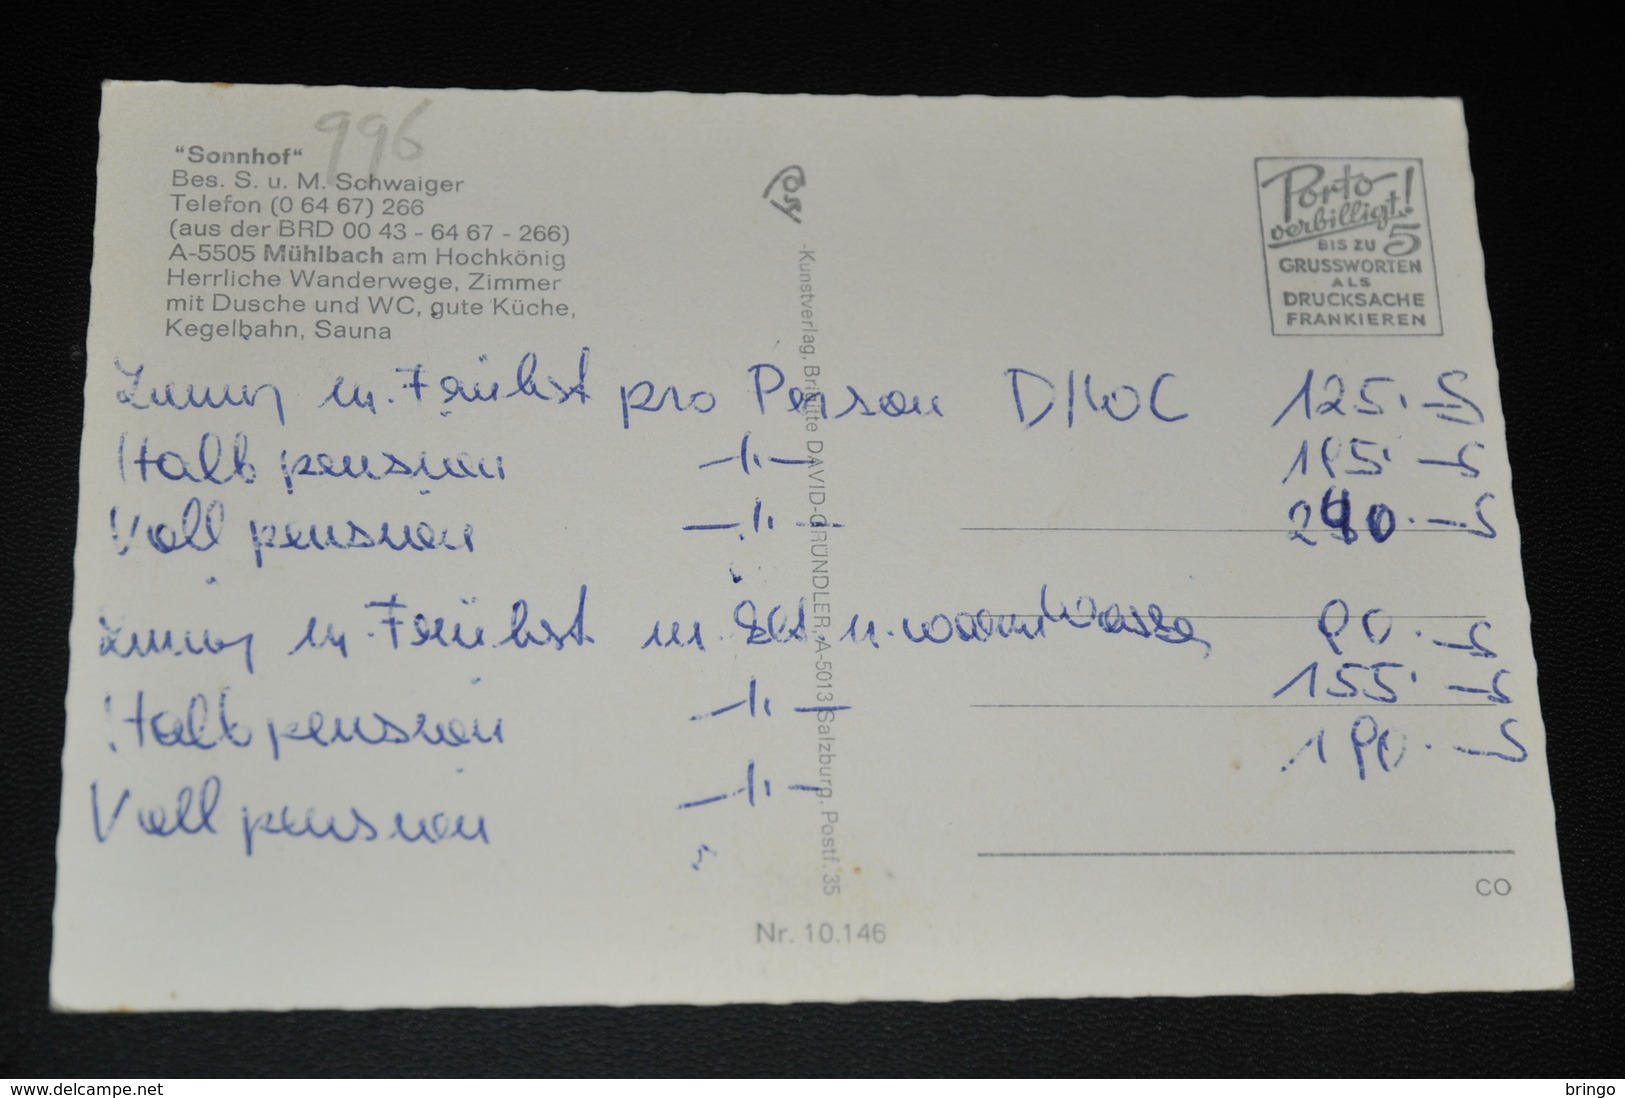 996
"Sonnhof"
Bes. S. u. M. Schwaiger
Telefon (0 64 67) 266
(aus der BRD 00 43 - 64 67 - 266)
A-5505 Mühlbach am Hochkönig
Herrliche Wanderwege, Zimmer
mit Dusche und WC, gute Küche,
Kegelbahn, Sauna
Porto
verbilligt!
BIS ZU 5
GRUSSWORTEN
ALS
DRUCKSACHE
FRANKIEREN
-Kunstverlag, Brigitte DAVID-GRÜNDLER, A-5013 Salzburg, Postf. 35
Zimmer m. Frühst pro Person D/WC 125.-S
Halbpension -"- -S
Vollpension -"- -S
Zimmer m. Frühst m. u. warmwasser 90.-S
Halbpension -"- 155.-S
Vollpension -"- 190.-S
CO
Nr. 10.146
www.delcampe.net
bringo